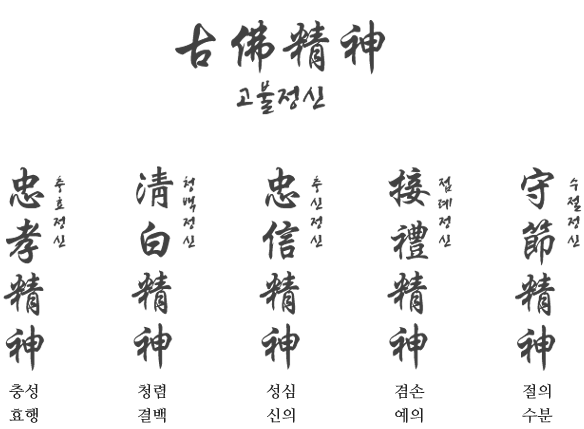 古佛精神
고불정신
忠孝精神
충효정신
충성
효행
淸白精神
청백정신
청렴
결백
忠信精神
충신정신
성심
신의
接禮精神
접례정신
겸손
예의
守節精神
수절정신
절의
수분